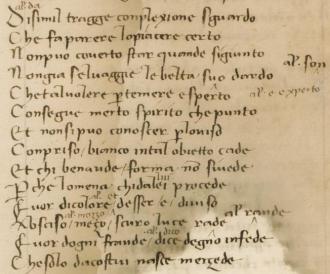 al. da
Disimil tragge complexione sguardo
Che fa parere lo piacere certo
Non puo coverto star quando si giunto
Non gia selvaggie le belta / suo dardo al. son
Che tal volere p temere e spêrto al. e experto
Consegue merto spirito che punto
Et non si puo conoscer p lo viso
Compriso / bianco in tal obietto cade
Et chi ben aude / forma nô si vede
Pche lo mena / chi da lei procede
Fuor di colore / desser e / diviso
Absciso / meço / scuro luce rade al. rande
Fuor dogni fraude / dice degno in fede
Che solo da costui nasce merçede